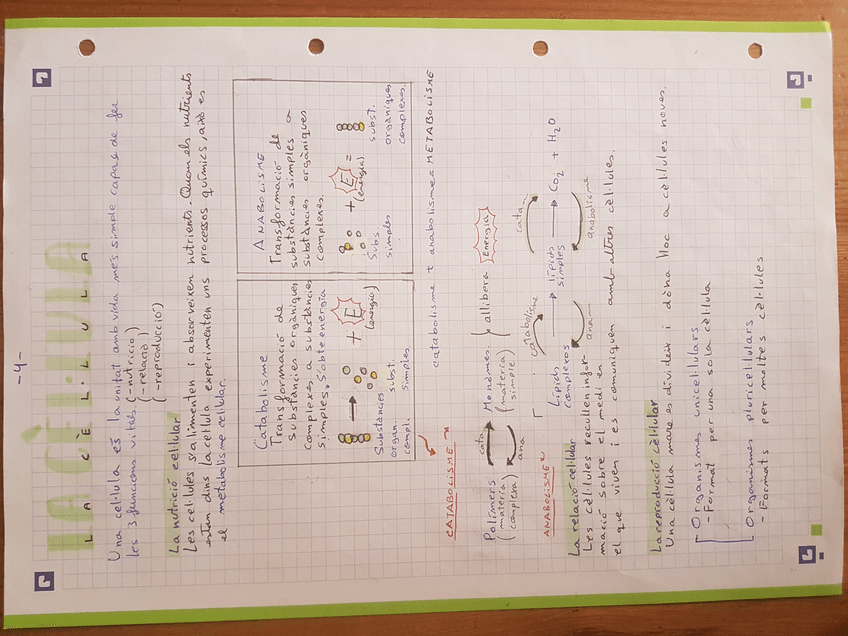 -4-
LA CÈL·LULA
LA CÈL·LULA
Una cèl·lula és la unitat amb vida més simple capaç de fer
les 3 funcions vitals. (-nutrició)
(-relació)
(-reproducció)
La nutrició cel·lular
Les cèl·lules s'alimenten i absorveixen nutrients. Quan els nutrients
estan dins la cèl·lula experimenten uns processos químics, això és
el metabolisme cel·lular.
Catabolisme
Transformació de
substàncies orgàniques
complexes a substàncies
simples. S'obté energia
+ E
(energia)
Substàncies
organ.
compl.
subst.
simples
ANABOLISME
Transformació de
substàncies simples a
substàncies orgàniques
complexes.
+ E =
(energia)
Subs.
simples
subst.
orgàniques
complexes.
catabolisme + anabolisme = METABOLISME
CATABOLISME
Polímers
(matèria
complexa)
cata
ana
Monòmers
(matèria
simple)
, allibera Energia
ANABOLISME
Lípids
complexos
catabolisme
ana-
Lípids
simples
cata-
anabolisme
CO2 + H2O
La relació cel·lular
Les cèl·lules recullen infor-
mació sobre el medi en
el que viven i es comuniquen amb altres cèl·lules.
La reproducció cèl·lular
Una cèl·lula mare es divideix i dóna lloc a cèl·lules noves.
Organismes unicel·lulars
- Format per una sola cèl·lula
Organismes pluricel·lulars
- Formats per moltes cèl·lules